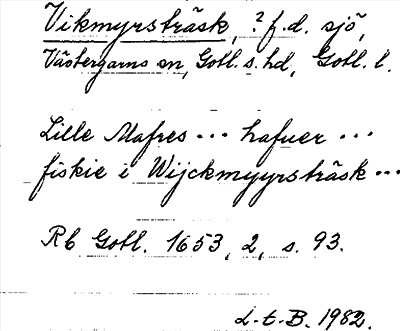 Vikmyrsträsk, ? f.d. sjö,
Västergarns sn, Gotl. s. hd, Gotl. l.
Lille Mafres ... hafuer ...
fiskie i Wijckmyyrsträsk ...
Rb Gotl. 1653, 2, s. 93.
L-t-B. 1982.